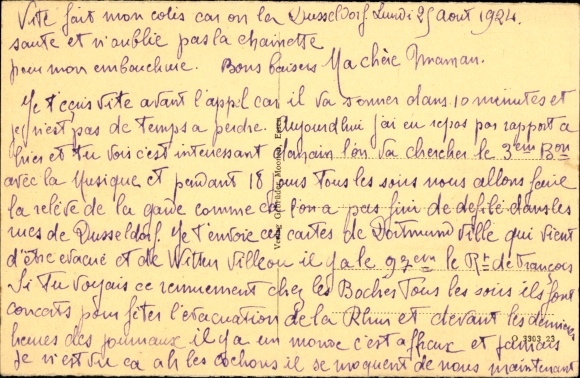 Vite fait mon colis car on la
Dusseldorf Lundi 25 Aout 1924.
saute et n'aublie pas la chainette
pour mon embouchure. Bons baisers
Ma chère Maman.
Je t'ecris vite avant l'appel car il va sonner dans 10 minutes et
je n'est pas de temps a perdre. Aujourdhui j'ai eu repos par rapport a
hier et tu vois c'est interessant demain l'on va chercher le 3eme Bon
avec la Musique et pendant 18 jours tous les soirs nous allons faire
la relève de la garde comme ça l'on a pas fini de defilé dans les
rues de Dusseldorf. Je t'envoie ces cartes de Dortmund ville qui vient
d'être evacué et de Witten Ville ou il y a le 97eme le Rt de François
Si tu voyais ce remuement chez les Boches Tous les soirs ils font
concerts pour fêter l'evacuation de la Rhur et devant les dernieres
heures des journaux il y a un monde c'est affreux et jamais
je n'est vu ca ah les cochons il se moquent de nous maintenant
Verlag Gebrüder, Essen
D 3303 23